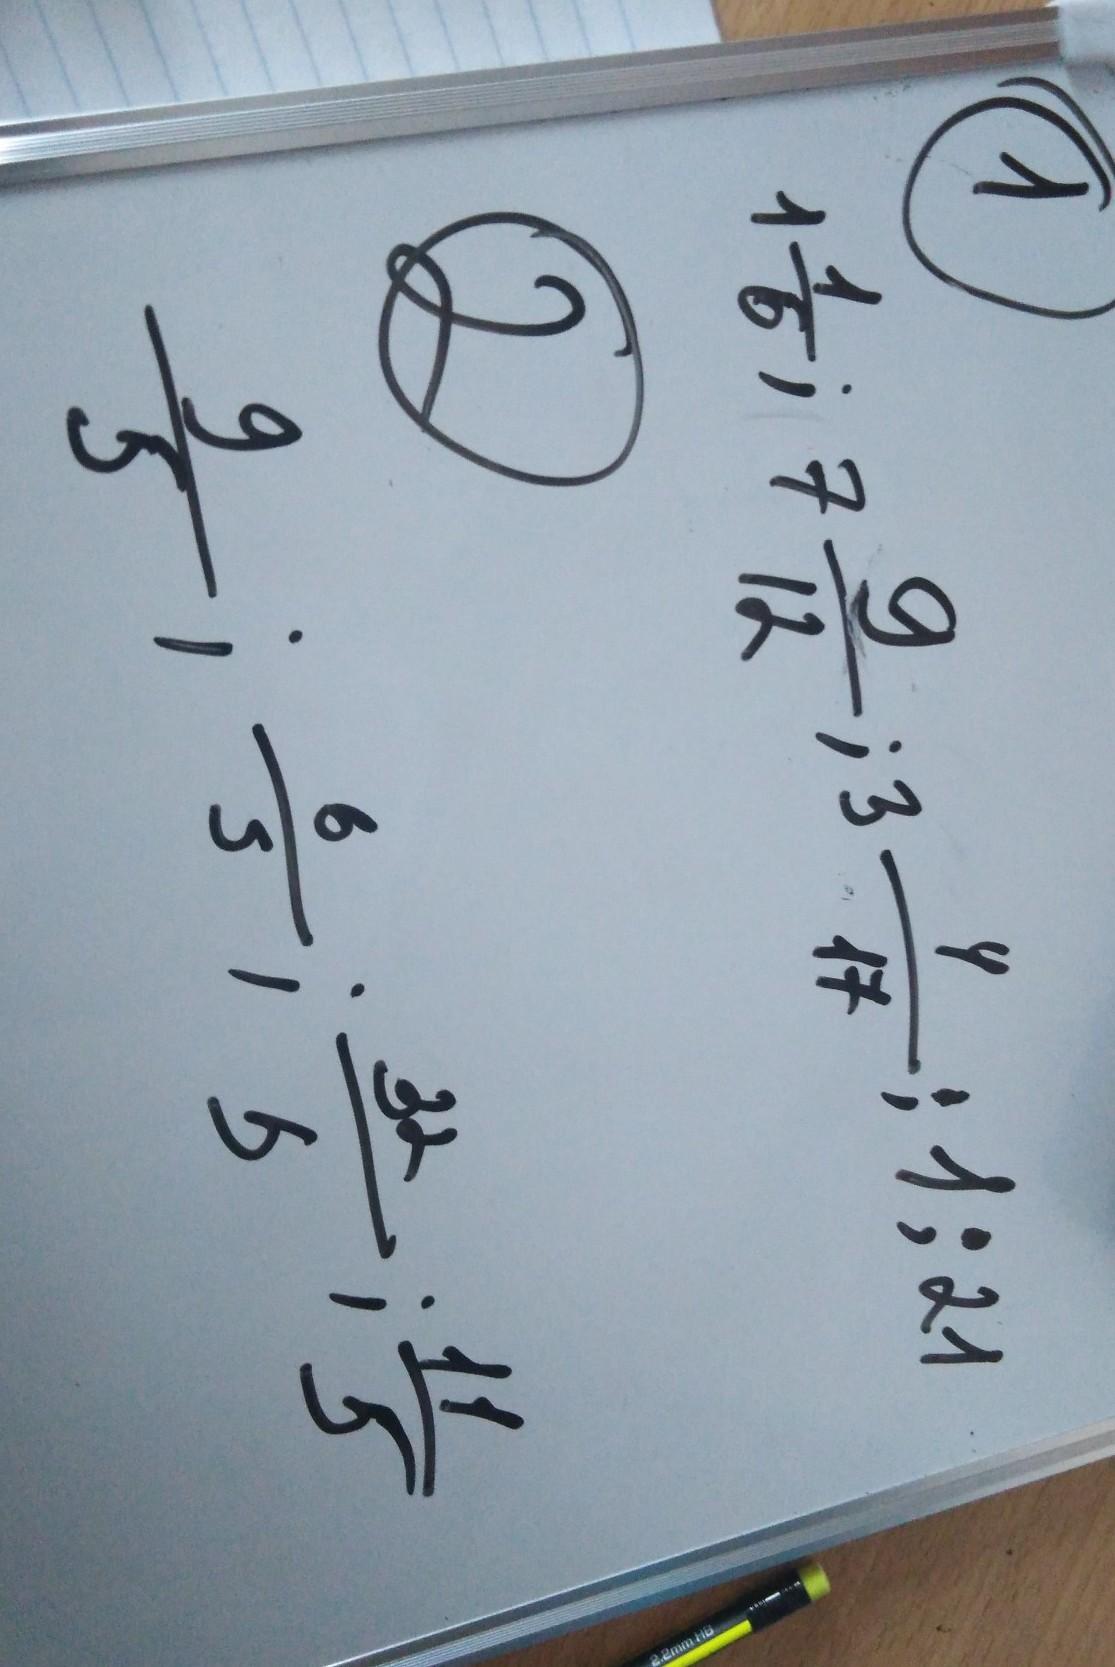 1
1 1/6 ; 7 9/12 ; 3 4/17 ; 1 ; 21
2
9/5 ; 6/5 ; 32/5 ; 11/5
2.2mm HB